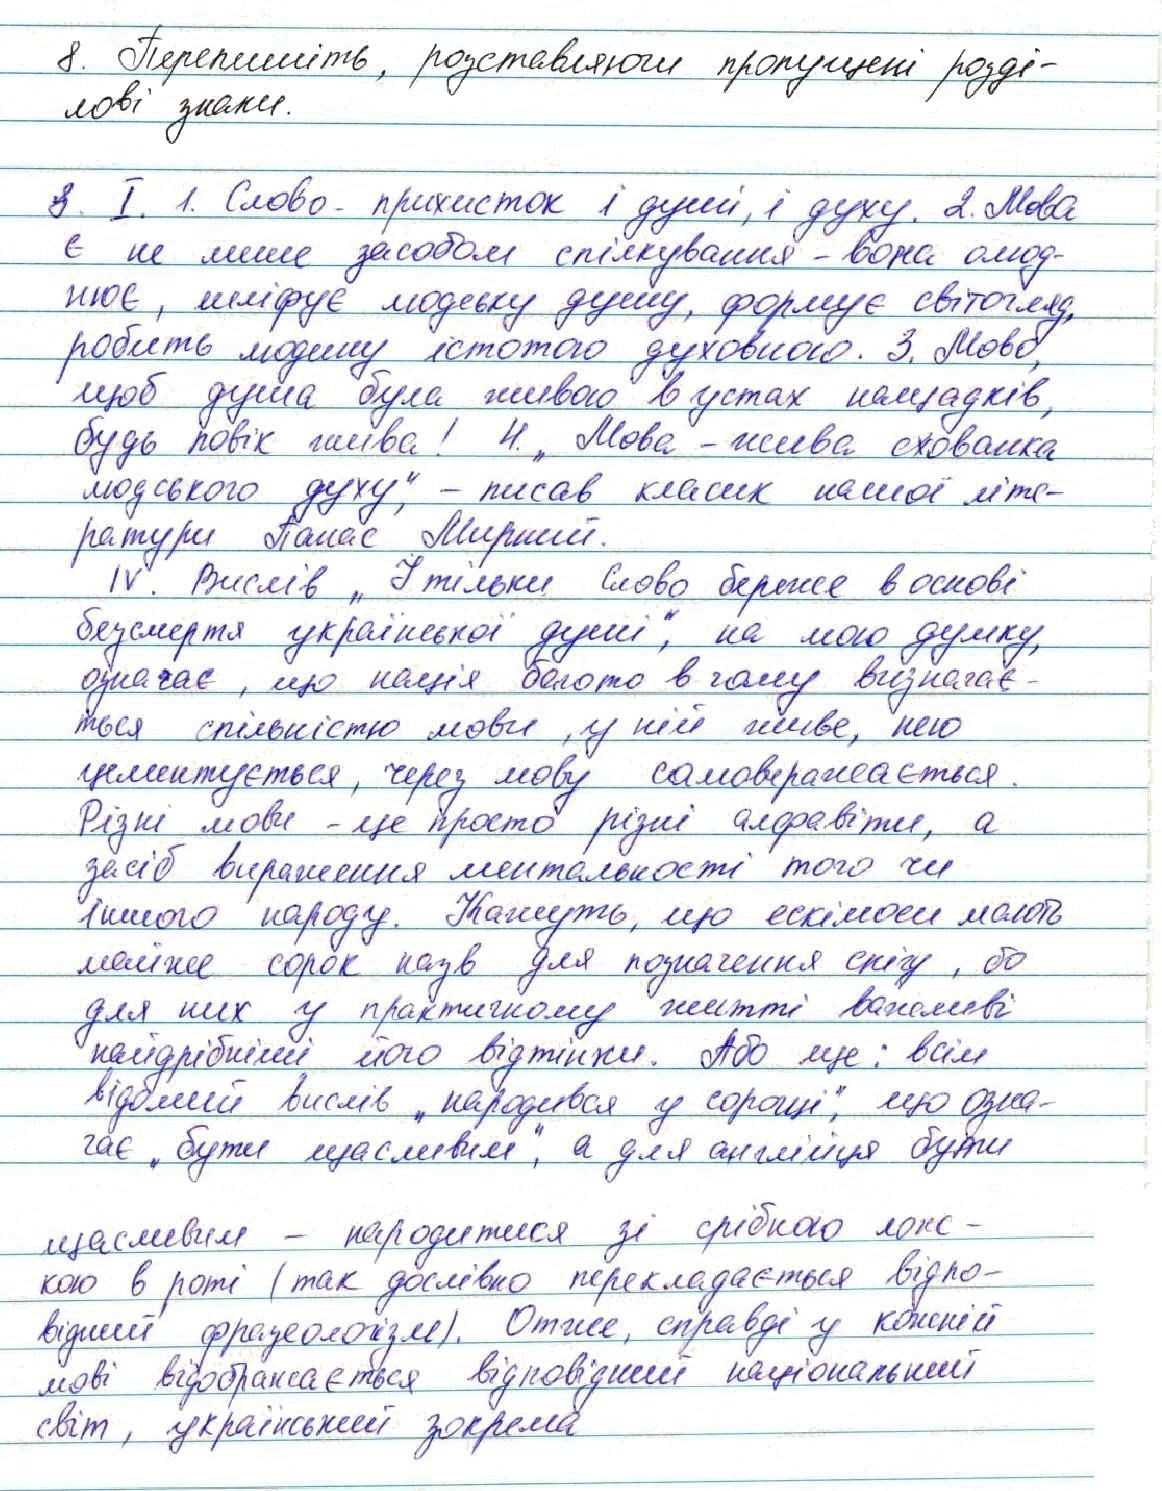 8. Перепишіть, розставляючи пропущені розді-
лові знаки.
8. I. 1. Слово - прихисток і душі, і духу. 2. Мова
є не лише засобом спілкування - вона олюд-
нює, шліфує людську душу, формує світогляд,
робить людину істотою духовною. 3. Мово,
щоб душа була живою в устах нащадків,
будь повік жива! 4. „Мова - жива схованка
людського духу", - писав класик нашої літе-
ратури Панас Мирний.
IV. Вислів „І тільки слово береже в основі
безсмертя української душі", на мою думку,
означає, що нація багато в чому визначає-
ться спільністю мови, у ній живе, нею
цементується, через мову самовиражається.
Різні мови - це просто різні алфавіти, а
засіб вираження ментальності того чи
іншого народу. Кажуть, що ескімоси мають
майже сорок назв для позначення снігу, бо
для них у практичному житті важливі
найдрібніші його відтінки. Або ще: всім
відомий вислів „народився у сорочці", що озна-
чає „бути щасливим", а для англійця бути
щасливим - народитися зі срібною лож-
кою в роті (так дослівно перекладається відпо-
відний фразеологізм). Отже, справді у кожній
мові відображається відповідний національний
світ, український зокрема